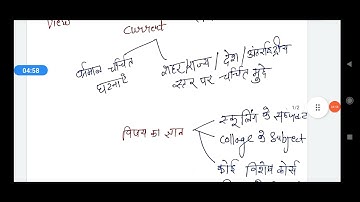 View
Current
04:58
वर्तमान चर्चित घटनाएँ
शहर/राज्य/देश/अंतर्राष्ट्रीय
स्तर पर चर्चित मुद्दे
1/2
विषय का ज्ञान
स्कूलिंग के सब्जेक्ट
College के Subject
कोई विशेष कोर्स